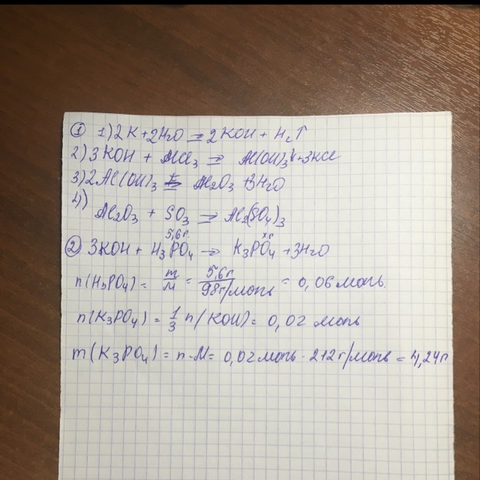 ① 1) 2K + 2H2O = 2KOH + H2↑
2) 3KOH + AlCl3 = Al(OH)3↓ + 3KCl
3) 2Al(OH)3 t= Al2O3 + 3H2O
4)
Al2O3 + SO3 → Al2(SO4)3
5,6г хг
② 3KOH + H3PO4 → K3PO4 + 3H2O
n(H3PO4) = m/M = 5,6г/98г/моль = 0,06 моль
n(K3PO4) = 1/3 n(KOH) = 0,02 моль
m(K3PO4) = n·M = 0,02моль · 212г/моль = 4,24г